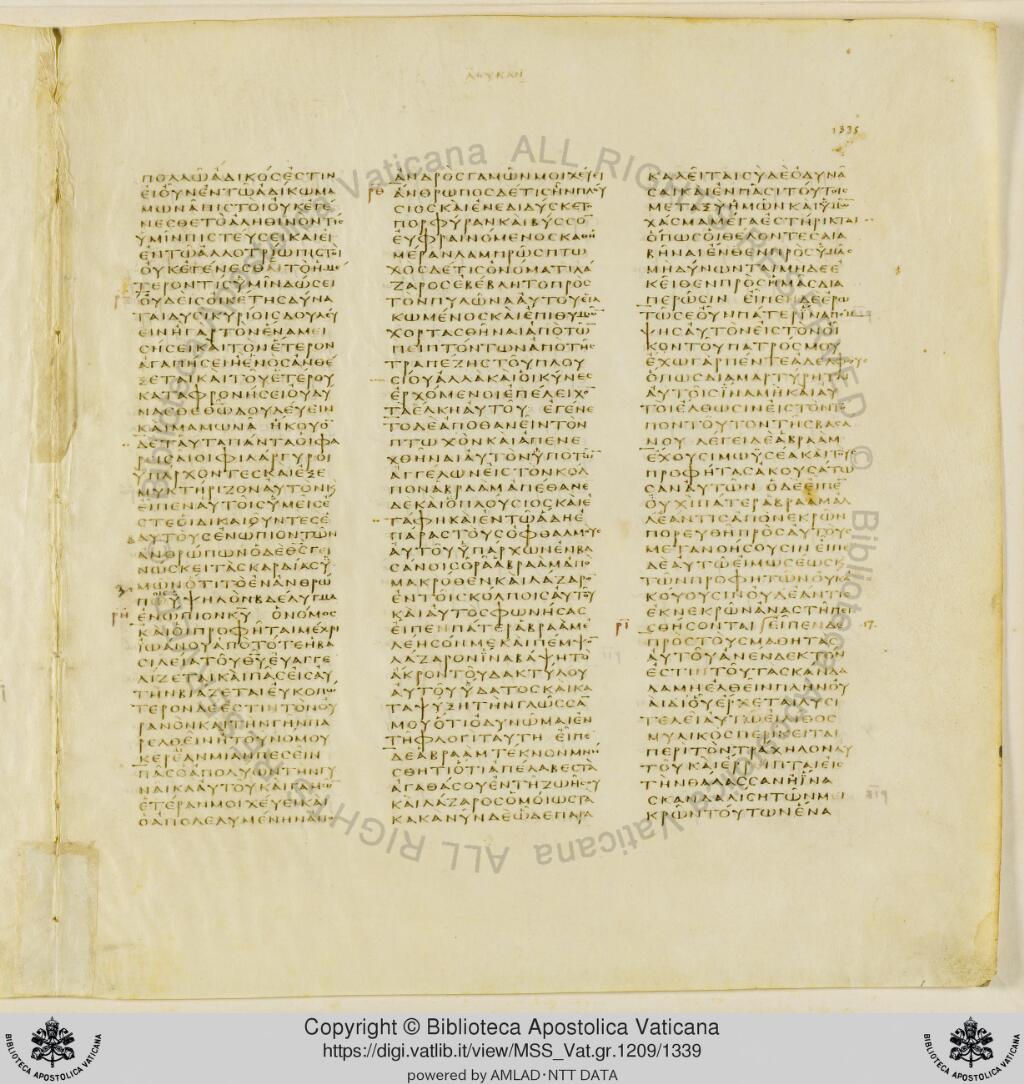 ΛΟΥΚΑΝ
1335
ΠΟΛΛΩΑΔΙΚΟϹΕϹΤΙΝ
ΕΙΟΥΝΕΝΤΩΑΔΙΚΩΜΑ
ΜΩΝΑΠΙϹΤΟΙΟΥΚΕΓΕ
ΝΕϹΘΕΤΟΑΛΗΘΙΝΟΝΤΙϹ
ΥΜΙΝΠΙϹΤΕΥϹΕΙΚΑΙΕΙ
ΕΝΤΩΑΛΛΟΤΡΙΩΠΙϹΤΟΙ
ΟΥΚΕΓΕΝΕϹΘΑΙΤΟΗΜΕ
ΤΕΡΟΝΤΙϹΥΜΙΝΔΩϹΕΙ
ΟΥΔΕΙϹΟΙΚΕΤΗϹΔΥΝΑ
ΤΑΙΔΥϹΙΚΥΡΙΟΙϹΔΟΥΛΕΥ
ΕΙΝΗΓΑΡΤΟΝΕΝΑΜΕΙ
ϹΗϹΕΙΚΑΙΤΟΝΕΤΕΡΟΝ
ΑΓΑΠΗϹΕΙΗΕΝΟϹΑΝΘΕ
ΞΕΤΑΙΚΑΙΤΟΥΕΤΕΡΟΥ
ΚΑΤΑΦΡΟΝΗϹΕΙΟΥΔΥ
ΝΑϹΘΕΘΩΔΟΥΛΕΥΕΙΝ
ΚΑΙΜΑΜΩΝΑ ΗΚΟΥΟ̅
ΔΕΤΑΥΤΑΠΑΝΤΑΟΙΦΑ
ΡΙϹΑΙΟΙΦΙΛΑΡΓΥΡΟΙ
ΥΠΑΡΧΟΝΤΕϹΚΑΙΕΞΕ
ΜΥΚΤΗΡΙΖΟΝΑΥΤΟΝΚ
ΕΙΠΕΝΑΥΤΟΙϹΥΜΕΙϹΕ
ϹΤΕΟΙΔΙΚΑΙΟΥΝΤΕϹΕ
ΑΥΤΟΥϹΕΝΩΠΙΟΝΤΩΝ
ΑΝΘΡΩΠΩΝΟΔΕΘ̅Ϲ̅ΓΕΙ
ΝΩϹΚΕΙΤΑϹΚΑΡΔΙΑϹΥ
ΜΩΝΟΤΙΤΟΕΝΑΝΘΡΩ
ΠΟΙϹΥΨΗΛΟΝΒΔΕΛΥΓΜΑ
ΡΗ ΕΝΩΠΙΟΝΚ̅Υ̅ ΟΝΟΜΟϹ
ΚΑΙΟΙΠΡΟΦΗΤΑΙΜΕΧΡΙ
ΙΩΑΝΟΥΑΠΟΤΟΤΕΗΒΑ
ϹΙΛΕΙΑΤΟΥΘ̅Υ̅ΕΥΑΓΓΕ
ΛΙΖΕΤΑΙΚΑΙΠΑϹΕΙϹΑΥ
ΤΗΝΒΙΑΖΕΤΑΙΕΥΚΟΠΩ
ΤΕΡΟΝΔΕΕϹΤΙΝΤΟΝΟΥ
ΡΑΝΟΝΚΑΙΤΗΝΓΗΝΠΑ
ΡΕΛΘΕΙΝΗΤΟΥΝΟΜΟΥ
ΚΕΡΕΑΝΜΙΑΝΠΕϹΕΙΝ
ΠΑϹΟΑΠΟΛΥΩΝΤΗΝΓΥ
ΝΑΙΚΑΑΥΤΟΥΚΑΙΓΑΜΩ̅
ΕΤΕΡΑΝΜΟΙΧΕΥΕΙΚΑΙ
ΟΑΠΟΛΕΛΥΜΕΝΗΝΑΠΟ
ΑΝΔΡΟϹΓΑΜΩΝΜΟΙΧΕΥΕΙ
ΡΘ ΑΝΘΡΩΠΟϹΔΕΤΙϹΗΝΠΛΟΥ
ϹΙΟϹΚΑΙΕΝΕΔΙΔΥϹΚΕΤΟ
ΠΟΡΦΥΡΑΝΚΑΙΒΥϹϹΟ̅
ΕΥΦΡΑΙΝΟΜΕΝΟϹΚΑΘΗ
ΜΕΡΑΝΛΑΜΠΡΩϹΠΤΩ
ΧΟϹΔΕΤΙϹΟΝΟΜΑΤΙΛΑ
ΖΑΡΟϹΕΒΕΒΛΗΤΟΠΡΟϹ
ΤΟΝΠΥΛΩΝΑΑΥΤΟΥΕΙΛ
ΚΩΜΕΝΟϹΚΑΙΕΠΙΘΥΜΩ̅
ΧΟΡΤΑϹΘΗΝΑΙΑΠΟΤΩ̅
ΠΕΙΠΤΟΝΤΩΝΑΠΟΤΗϹ
ΤΡΑΠΕΖΗϹΤΟΥΠΛΟΥ
ϹΙΟΥΑΛΛΑΚΑΙΟΙΚΥΝΕϹ
ΕΡΧΟΜΕΝΟΙΕΠΕΛΕΙΧΟ̅
ΤΑΕΛΚΗΑΥΤΟΥ ΕΓΕΝΕ
ΤΟΔΕΑΠΟΘΑΝΕΙΝΤΟΝ
ΠΤΩΧΟΝΚΑΙΑΠΕΝΕ
ΧΘΗΝΑΙΑΥΤΟΝΥΠΟΤΩ̅
ΑΓΓΕΛΩΝΕΙϹΤΟΝΚΟΛ
ΠΟΝΑΒΡΑΑΜΑΠΕΘΑΝΕ
ΔΕΚΑΙΟΠΛΟΥϹΙΟϹΚΑΙΕ
ΤΑΦΗΚΑΙΕΝΤΩΑΔΗΕ
ΠΑΡΑϹΤΟΥϹΟΦΘΑΛΜΟΥϹ
ΑΥΤΟΥΥΠΑΡΧΩΝΕΝΒΑ
ϹΑΝΟΙϹΟΡΑΑΒΡΑΑΜΑΠΟ
ΜΑΚΡΟΘΕΝΚΑΙΛΑΖΑΡΟ̅
ΕΝΤΟΙϹΚΟΛΠΟΙϹΑΥΤΟΥ
ΚΑΙΑΥΤΟϹΦΩΝΗϹΑϹ
ΕΙΠΕΝΠΑΤΕΡΑΒΡΑΑΜΕ
ΛΕΗϹΟΝΜΕΚΑΙΠΕΜΨΟ̅
ΛΑΖΑΡΟΝΙΝΑΒΑΨΗΤΟ
ΑΚΡΟΝΤΟΥΔΑΚΤΥΛΟΥ
ΑΥΤΟΥΥΔΑΤΟϹΚΑΙΚΑ
ΤΑΨΥΞΗΤΗΝΓΛΩϹϹΑ̅
ΜΟΥΟΤΙΟΔΥΝΩΜΑΙΕΝ
ΤΗΦΛΟΓΙΤΑΥΤΗ ΕΙΠΕ̅
ΔΕΑΒΡΑΑΜΤΕΚΝΟΝΜΝΗ
ϹΘΗΤΙΟΤΙΑΠΕΛΑΒΕϹΤΑ
ΑΓΑΘΑϹΟΥΕΝΤΗΖΩΗϹΟΥ
ΚΑΙΛΑΖΑΡΟϹΟΜΟΙΩϹΤΑ
ΚΑΚΑΝΥΝΔΕΩΔΕΠΑΡΑ
ΚΑΛΕΙΤΑΙϹΥΔΕΟΔΥΝΑ
ϹΑΙΚΑΙΕΝΠΑϹΙΤΟΥΤΟΙϹ
ΜΕΤΑΞΥΗΜΩΝΚΑΙΥΜΩ̅
ΧΑϹΜΑΜΕΓΑΕϹΤΗΡΙΚΤΑΙ
ΟΠΩϹΟΙΘΕΛΟΝΤΕϹΔΙΑ
ΒΗΝΑΙΕΝΘΕΝΠΡΟϹΥΜΑϹ
ΜΗΔΥΝΩΝΤΑΙΜΗΔΕΕ
ΚΕΙΘΕΝΠΡΟϹΗΜΑϹΔΙΑ
ΠΕΡΩϹΙΝ ΕΙΠΕΝΔΕΕΡΩ
ΤΩϹΕΟΥΝΠΑΤΕΡΙΝΑΠΕΜ
ΨΗϹΑΥΤΟΝΕΙϹΤΟΝΟΙ
ΚΟΝΤΟΥΠΑΤΡΟϹΜΟΥ
ΕΧΩΓΑΡΠΕΝΤΕΑΔΕΛΦΟΥϹ
ΟΠΩϹΔΙΑΜΑΡΤΥΡΗΤΑΙ
ΑΥΤΟΙϹΙΝΑΜΗΚΑΙΑΥ
ΤΟΙΕΛΘΩϹΙΝΕΙϹΤΟΝΤΟ
ΠΟΝΤΟΥΤΟΝΤΗϹΒΑϹΑ
ΝΟΥ ΛΕΓΕΙΔΕΑΒΡΑΑΜ
ΕΧΟΥϹΙΜΩΥϹΕΑΚΑΙΤΟΥϹ
ΠΡΟΦΗΤΑϹΑΚΟΥϹΑΤΩ
ϹΑΝΑΥΤΩΝ ΟΔΕΕΙΠΕ̅
ΟΥΧΙΠΑΤΕΡΑΒΡΑΑΜΑΛ
ΛΕΑΝΤΙϹΑΠΟΝΕΚΡΩΝ
ΠΟΡΕΥΘΗΠΡΟϹΑΥΤΟΥϹ
ΜΕΤΑΝΟΗϹΟΥϹΙΝ ΕΙΠΕ̅
ΔΕΑΥΤΩΕΙΜΩϹΕΩϹΚ
ΤΩΝΠΡΟΦΗΤΩΝΟΥΚΑ
ΚΟΥΟΥϹΙΝΟΥΔΕΑΝΤΙϹ
ΕΚΝΕΚΡΩΝΑΝΑϹΤΗΠΕΙ
ΡΙ ϹΘΗϹΟΝΤΑΙ ΕΙΠΕΝΔΕ
ΠΡΟϹΤΟΥϹΜΑΘΗΤΑϹ
ΑΥΤΟΥΑΝΕΝΔΕΚΤΟΝ
ΕϹΤΙΝΤΟΥΤΑϹΚΑΝΔΑ
ΛΑΜΗΕΛΘΕΙΝΠΛΗΝΟΥ
ΑΙΔΙΟΥΕΡΧΕΤΑΙΛΥϹΙ
ΤΕΛΕΙΑΥΤΩΕΙΛΙΘΟϹ
ΜΥΛΙΚΟϹΠΕΡΙΚΕΙΤΑΙ
ΠΕΡΙΤΟΝΤΡΑΧΗΛΟΝΑΥ
ΤΟΥΚΑΙΕΡΡΙΠΤΑΙΕΙϹ
ΤΗΝΘΑΛΑϹϹΑΝΗΙΝΑ
ϹΚΑΝΔΑΛΙϹΗΤΩΝΜΕΙ
ΚΡΩΝΤΟΥΤΩΝΕΝΑ
Biblioteca Apostolica Vaticana ALL RIGHTS RESERVED ©
BIBLIOTECA APOSTOLICA VATICANA
Copyright © Biblioteca Apostolica Vaticana
https://digi.vatlib.it/view/MSS_Vat.gr.1209/1339
powered by AMLAD·NTT DATA
BIBLIOTECA APOSTOLICA VATICANA